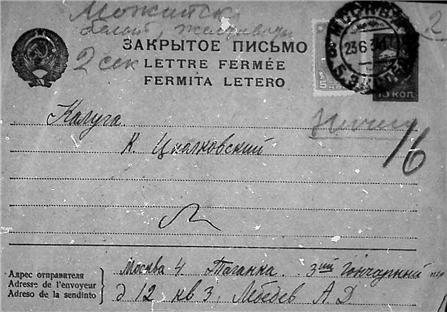 Можайск
2 сек
ЗАКРЫТОЕ ПИСЬМО
LETTRE FERMÉE
FERMITA LETERO
МОСКВА
23 6 3
15 КОП.
Калуга.
К. Циалковский
16
Адрес отправителя
Adresse de l'envoyeur
Adreso de la sendinto
Москва 4. Таганка. 3ий Гончарный пер
д 12 кв 3. Лебедев А Д